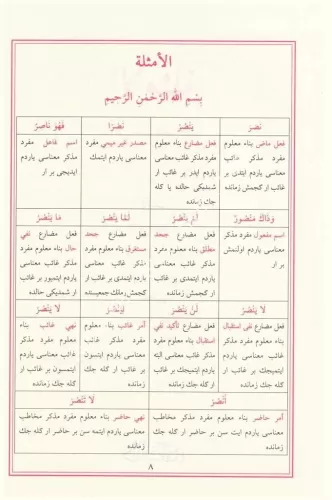 الأمثلة
بِسْمِ اللهِ الرَّحْمٰنِ الرَّحِيمِ
نَصَرَ
يَنْصُرُ
نَصْرًا
فَهُوَ نَاصِرٌ
فعل ماضى بناء معلوم
مفرد مذكر غائب
معناسى ياردم ايتدى بر
غائب ار كجمش زمانده
فعل مضارع بناء معلوم
مفرد مذكر غائب معناسى
ياردم ايدر بر غائب ار
شمديكى حالده يا كله
جك زمانده
مصدر غير ميمى مفرد
معناسى ياردم ايتمك
اسم فاعل مفرد
مذكر معناسى ياردم
ايديجى بر ار
وَذَاكَ مَنْصُورٌ
لَمْ يَنْصُرْ
لَمَّا يَنْصُرْ
مَا يَنْصُرُ
اسم مفعول مفرد مذكر
معناسى ياردم اولنمش
بر ار
فعل مضارع جحد
مطلق بناء معلوم مفرد
مذكر غائب معناسى
ياردم ايتمدى بر غائب ار
كجمش زمانده
فعل مضارع جحد
مستغرق بناء معلوم مفرد
مذكر غائب معناسى
ياردم ايتمدى بر غائب ار
كجمش زمانك جميعسنده
فعل مضارع نفي
حال بناء معلوم مفرد
مذكر غائب معناسى
ياردم ايتميور بر غائب
ار شمديكى حالده
لَا يَنْصُرُ
لَنْ يَنْصُرَ
لِيَنْصُرْ
لَا يَنْصُرْ
فعل مضارع نفي استقبال
بناء معلوم مفرد مذكر
غائب معناسى ياردم
ايتميجك بر غائب ار
كله جك زمانده
فعل مضارع تأكيد نفي
استقبال بناء معلوم مفرد
مذكر غائب معناسى البته
ياردم ايتميجك بر غائب
ار كله جك زمانده
أمر غائب بناء معلوم
مفرد مذكر غائب
معناسى ياردم ايتسون
بر غائب ار كله جك
زمانده
نهي غائب بناء
معلوم مفرد مذكر
غائب معناسى ياردم
ايتمسون بر غائب ار
كله جك زمانده
اُنْصُرْ
لَا تَنْصُرْ
أمر حاضر بناء معلوم مفرد مذكر مخاطب
معناسى ياردم ايت سن بر حاضر ار كله جك
زمانده
نهي حاضر بناء معلوم مفرد مذكر مخاطب
معناسى ياردم ايتمه سن بر حاضر ار كله جك
زمانده
٨